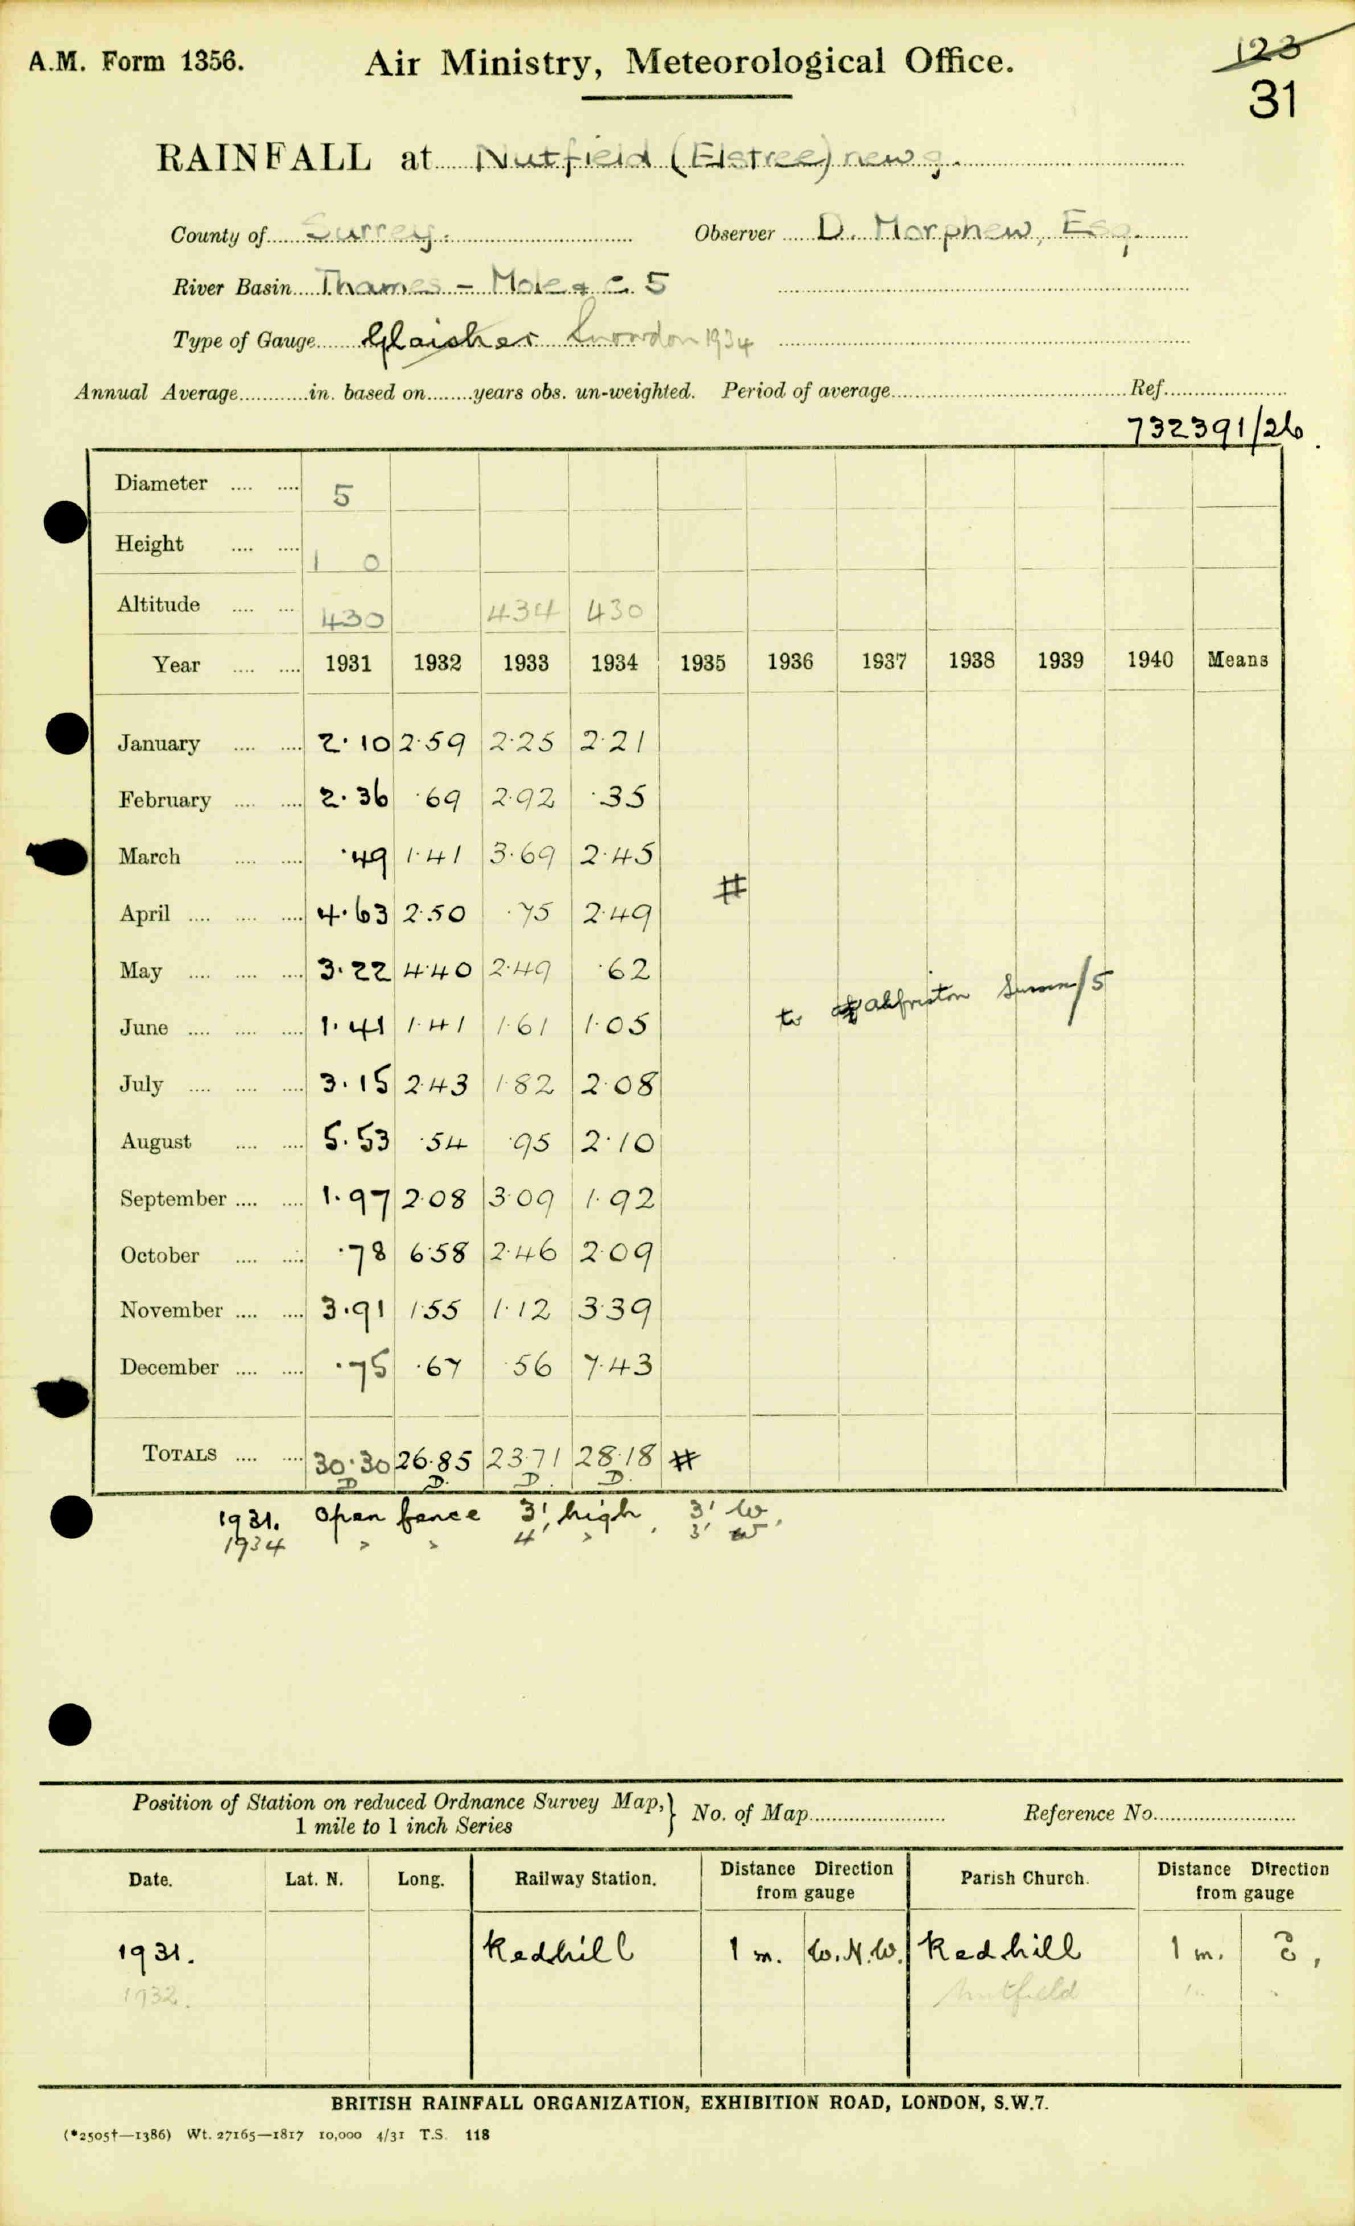 A.M. Form 1356. Air Ministry, Meteorological Office. 123
31
RAINFALL at Nutfield (Elstree) new g.
County of Surrey. Observer D. Morphew, Esq.
River Basin Thames - Mole & C. 5
Type of Gauge Glaisher Snowdon 1934
Annual Average in. based on years obs. un-weighted. Period of average Ref.
732391/26.
Diameter 5
Height 1 0
Altitude 430 434 430
Year 1931 1932 1933 1934 1935 1936 1937 1938 1939 1940 Means
January 2.10 2.59 2.25 2.21
February 2.36 .69 2.92 .35
March .49 1.41 3.69 2.45
#
April 4.63 2.50 .75 2.49
May 3.22 4.40 2.49 .62
to alfriston Sussex/5
June 1.41 1.41 1.61 1.05
July 3.15 2.43 1.82 2.08
August 5.53 .54 .95 2.10
September 1.97 2.08 3.09 1.92
October .78 6.58 2.46 2.09
November 3.91 1.55 1.12 3.39
December .75 .67 .56 7.43
TOTALS 30.30 26.85 23.71 28.18 #
D D. D. D.
1931. Open fence 3' high, 3' W.
1934 " " 4' " 3' W
Position of Station on reduced Ordnance Survey Map, } No. of Map Reference No.
1 mile to 1 inch Series
Date. Lat. N. Long. Railway Station. Distance Direction from gauge Parish Church. Distance Direction from gauge
1931. Redhill 1 m. W.N.W. Redhill 1 m.
1932. Nutfield
BRITISH RAINFALL ORGANIZATION, EXHIBITION ROAD, LONDON, S.W.7.
(*2505†—1386) Wt. 27165—1817 10,000 4/31 T.S. 118